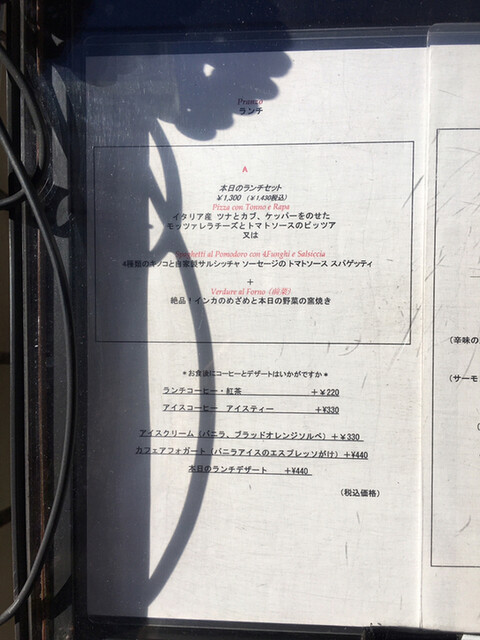 Pranzo
ランチ
A
本日のランチセット
￥1,300 （￥1,430税込）
Pizza con Tonno e Rapa
イタリア産 ツナとカブ、ケッパーをのせた
モッツァレラチーズとトマトソースのピッツア
又は
Spaghetti al Pomodoro con 4Funghi e Salsiccia
4種類のキノコと自家製サルシッチャ ソーセージのトマトソース スパゲッティ
+
Verdure al Forno（前菜）
絶品！インカのめざめと本日の野菜の窯焼き
＊お食後にコーヒーとデザートはいかがですか＊
ランチコーヒー・紅茶 +￥220
アイスコーヒー アイスティー +¥330
アイスクリーム（バニラ、ブラッドオレンジソルベ）+￥330
カフェアフォガート（バニラアイスのエスプレッソがけ）+¥440
本日のランチデザート +¥440
（税込価格）
（辛味の
（サーモ